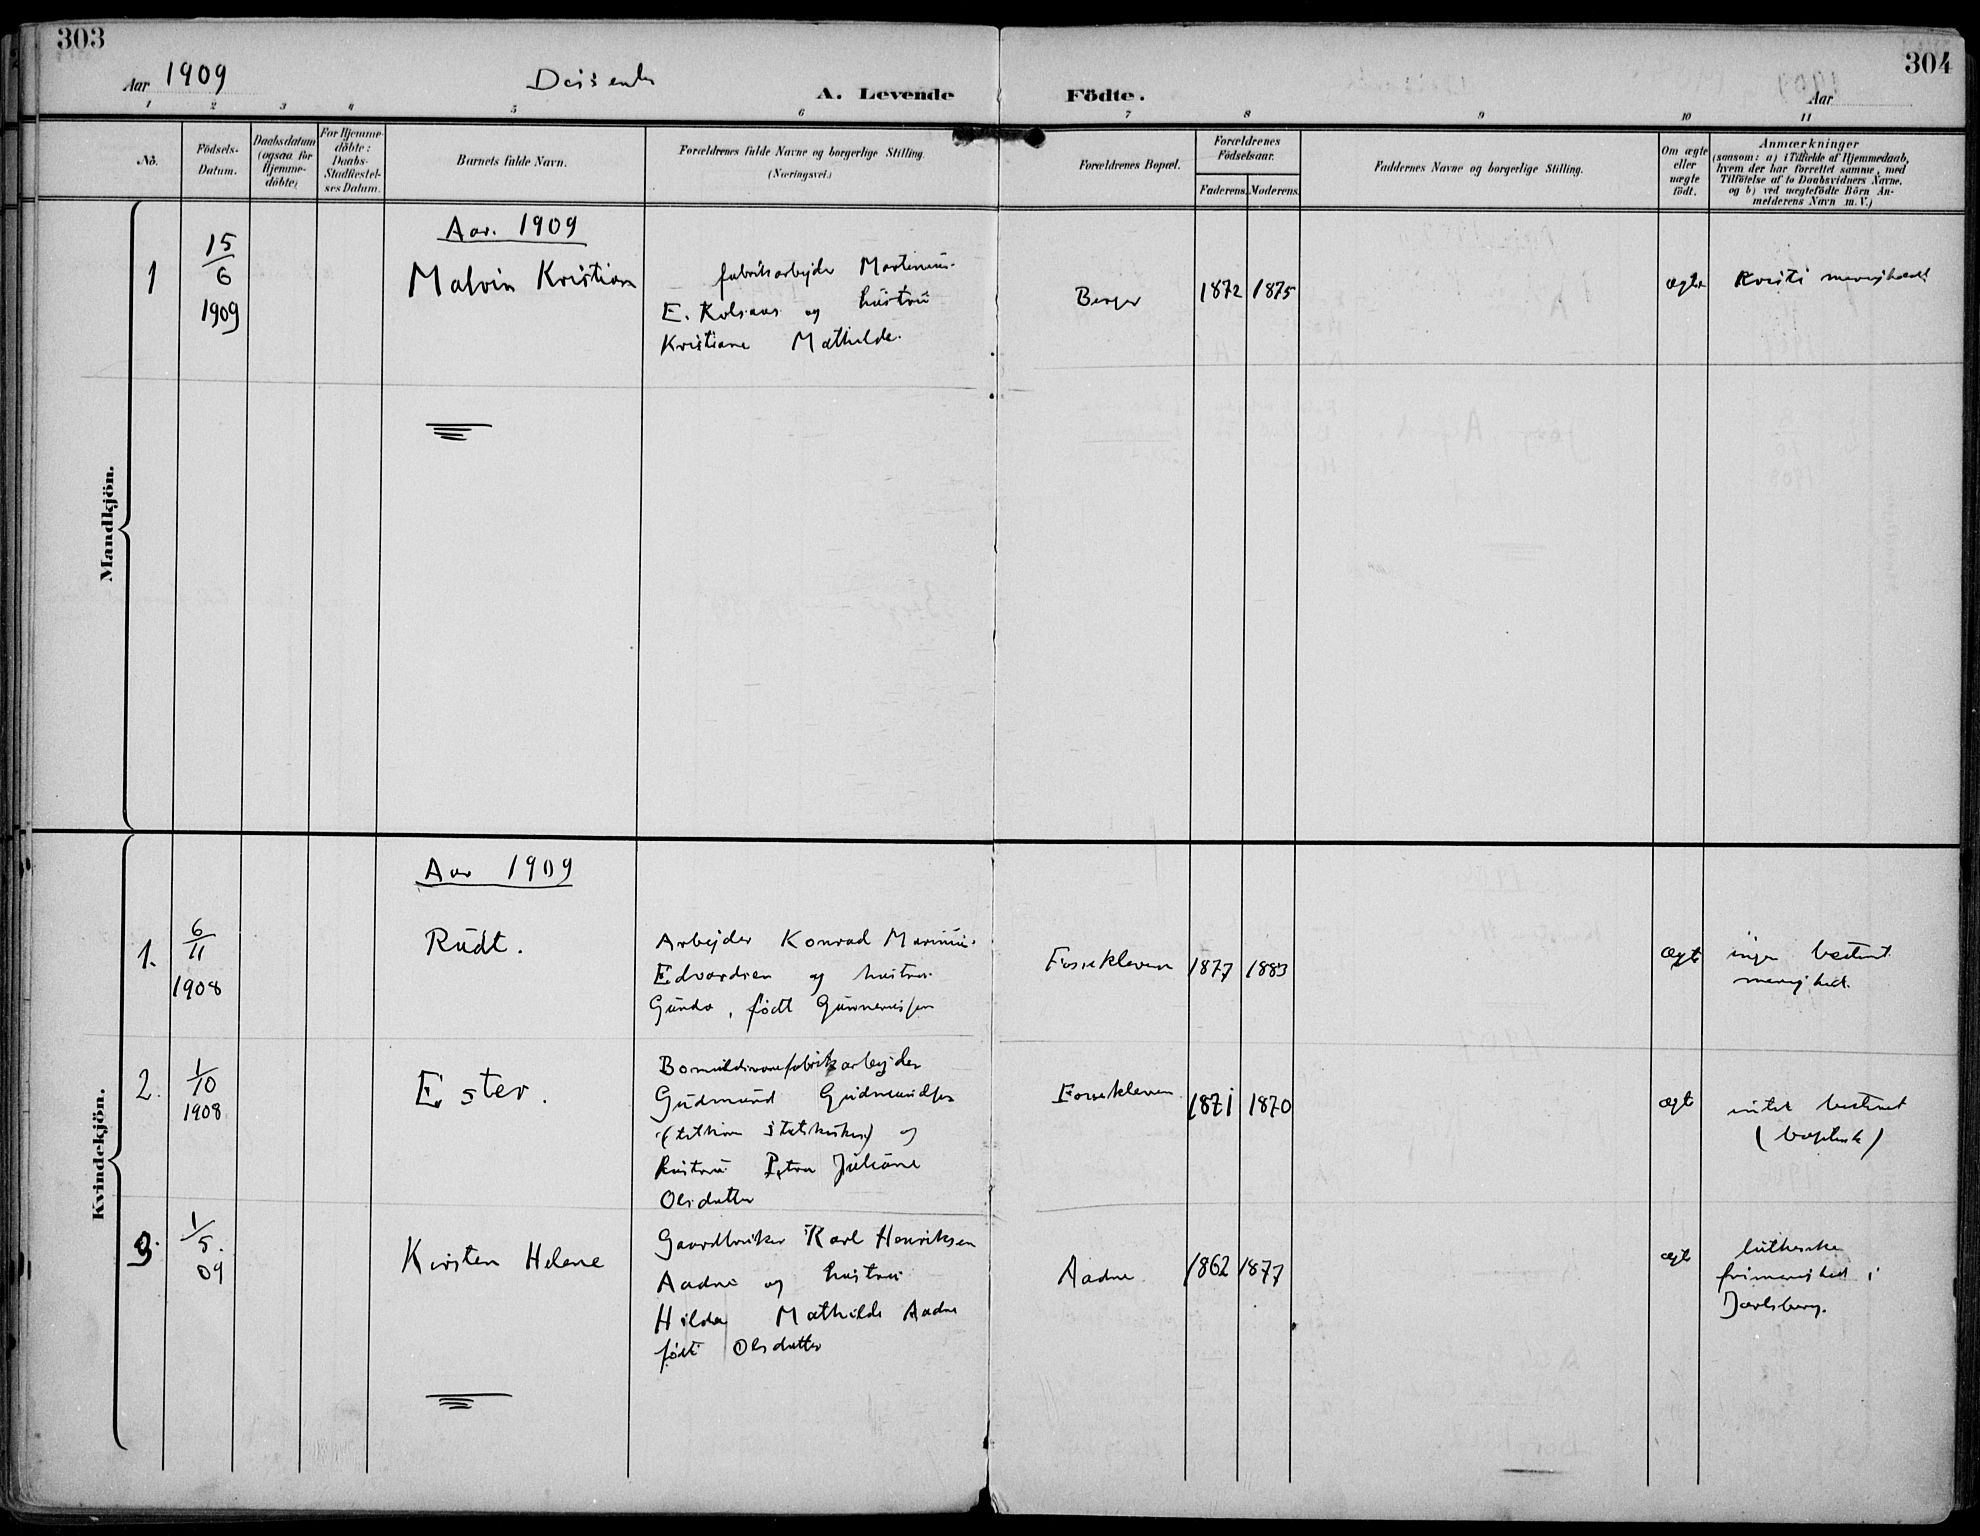 303
304
Aar 1909
Dissente
A. Levende Födte.
Aar
1 2 3 4 5 6 7 8 9 10 11
No.
Födsels-
Datum.
Daabsdatum
(ogsaa for
Hjemme-
döbte)
For Hjemme-
döbte:
Daabs-
Stadfæstel-
ses Datum.
Barnets fulde Navn.
Forældrenes fulde Navne og borgerlige Stilling.
(Næringsvei.)
Forældrenes Bopæl.
Forældrenes
Födselsaar.
Faderens. Moderens.
Faddernes Navne og borgerlige Stilling.
Om ægte
eller
uægte
födt.
Anmærkninger
(saasom: a) i Tilfælde af Hjemmedaab,
hvem der har forrettet samme, med
Tilföielse af to Daabsvidners Navne,
og b) ved uægtefödte Börn An-
melderens Navn m. V.)
Mandkjön.
Aar. 1909
1
15/6
1909
Malvin Kristian
fabrikarbejder Martinius
E. Kolsaas og hustru
Kristiane Mathilde.
Berger
1872 1875
ægte
Kristi menighed
Kvindekjön.
Aar 1909
1.
6/11
1908
Rudt.
Arbejder Konrad Marinius
Edvardsen og hustru
Gunda, født Gunneriussen
Fossekleven
1877 1883
ægte
ingen bestemt
menighed.
2.
1/10
1908
Ester.
Bomuldsvarefabrikarbejder
Gudmund Gudmundsen
og
hustru Petra Juliane
Olsdatter
Fossekleven
1871 1870
ægte
intet bestemt
(baptist)
3.
1/5.
09
Kirsten Helene
Gaardbruker Karl Henriksen
Aadne og hustru
Hilda Mathilde Aadne
født Olsdatter
Aadne
1862 1877
ægte
lutherske
frimenighed i
Jarlsberg.